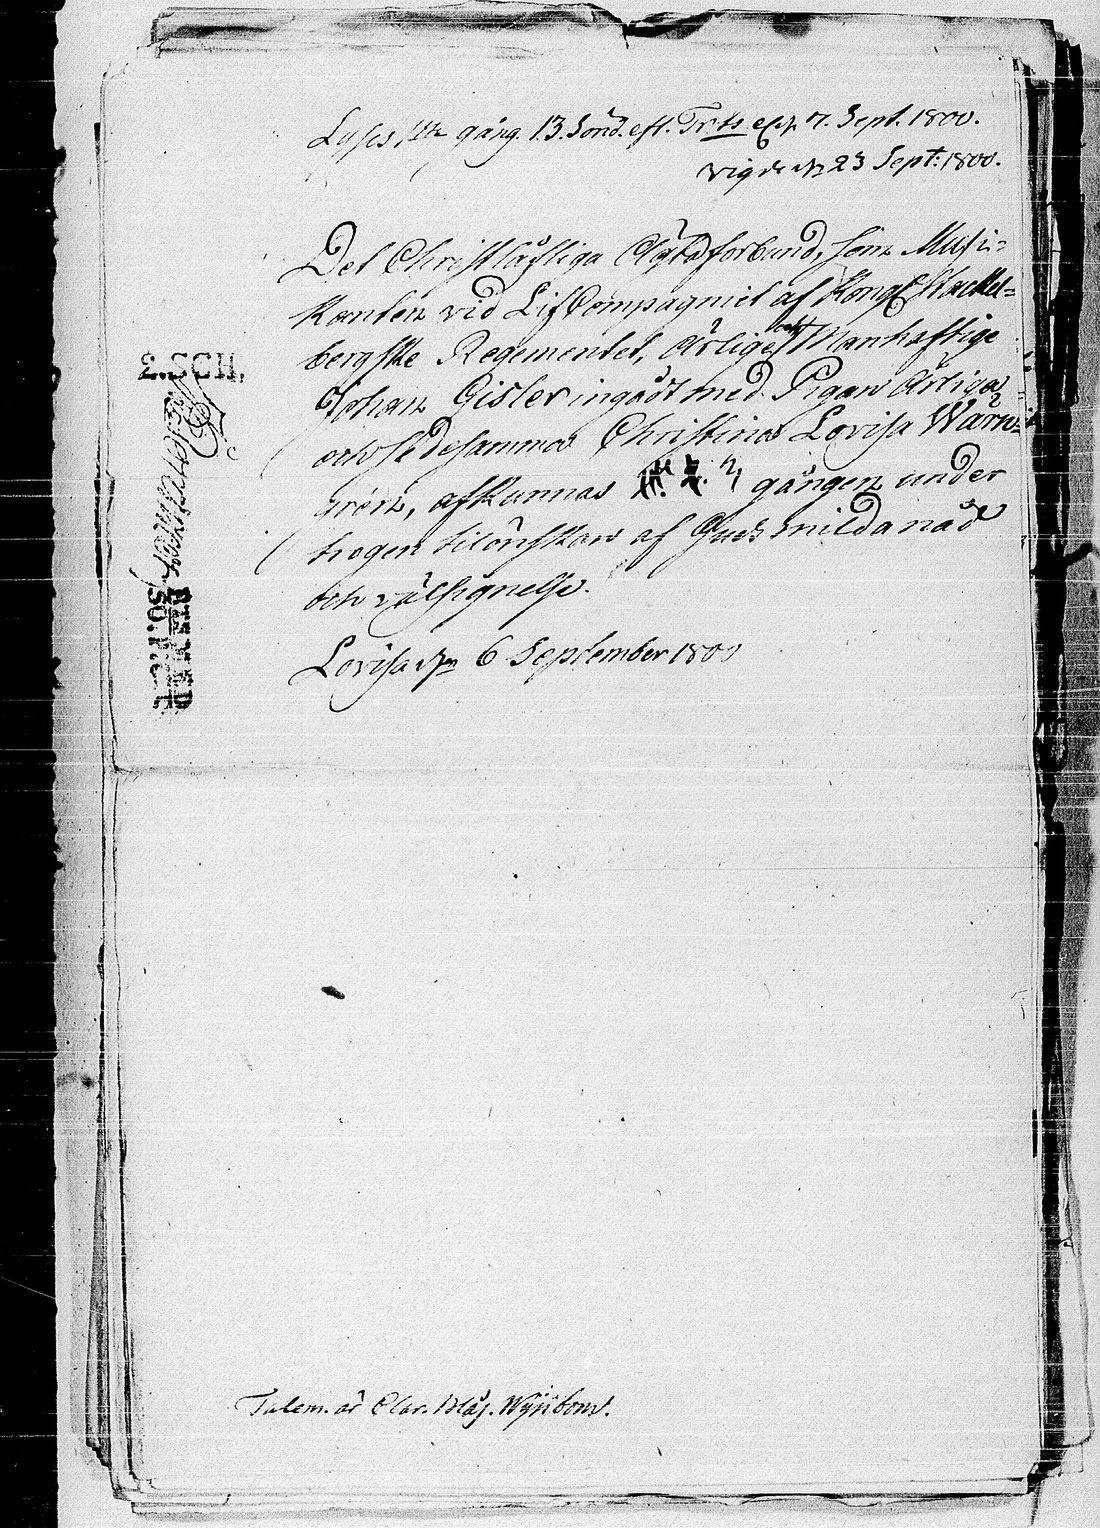 Lyses 1sta gång. 13. Sönd. eft. Trts 7. Sept. 1800.
vigde d. 23 Sept: 1800.
Det Christlåfliga Ägtaförbund, som Musi-
kanten vid Lif Compagniet af Kongl Stackel-
bergske Regementet, Ärlige och Manhaftige
Johan Gisler ingådt med Pigan Ärliga
och Sedesamma Christina Lovisa Warn-
grén, afkunnas gången under
trogen tilönskan af Guds milda nåd
och välsignelse.
Lovisa d. 6 September 1800
2. SCH.
Talem. är Clar. Bläs. Wynbom.